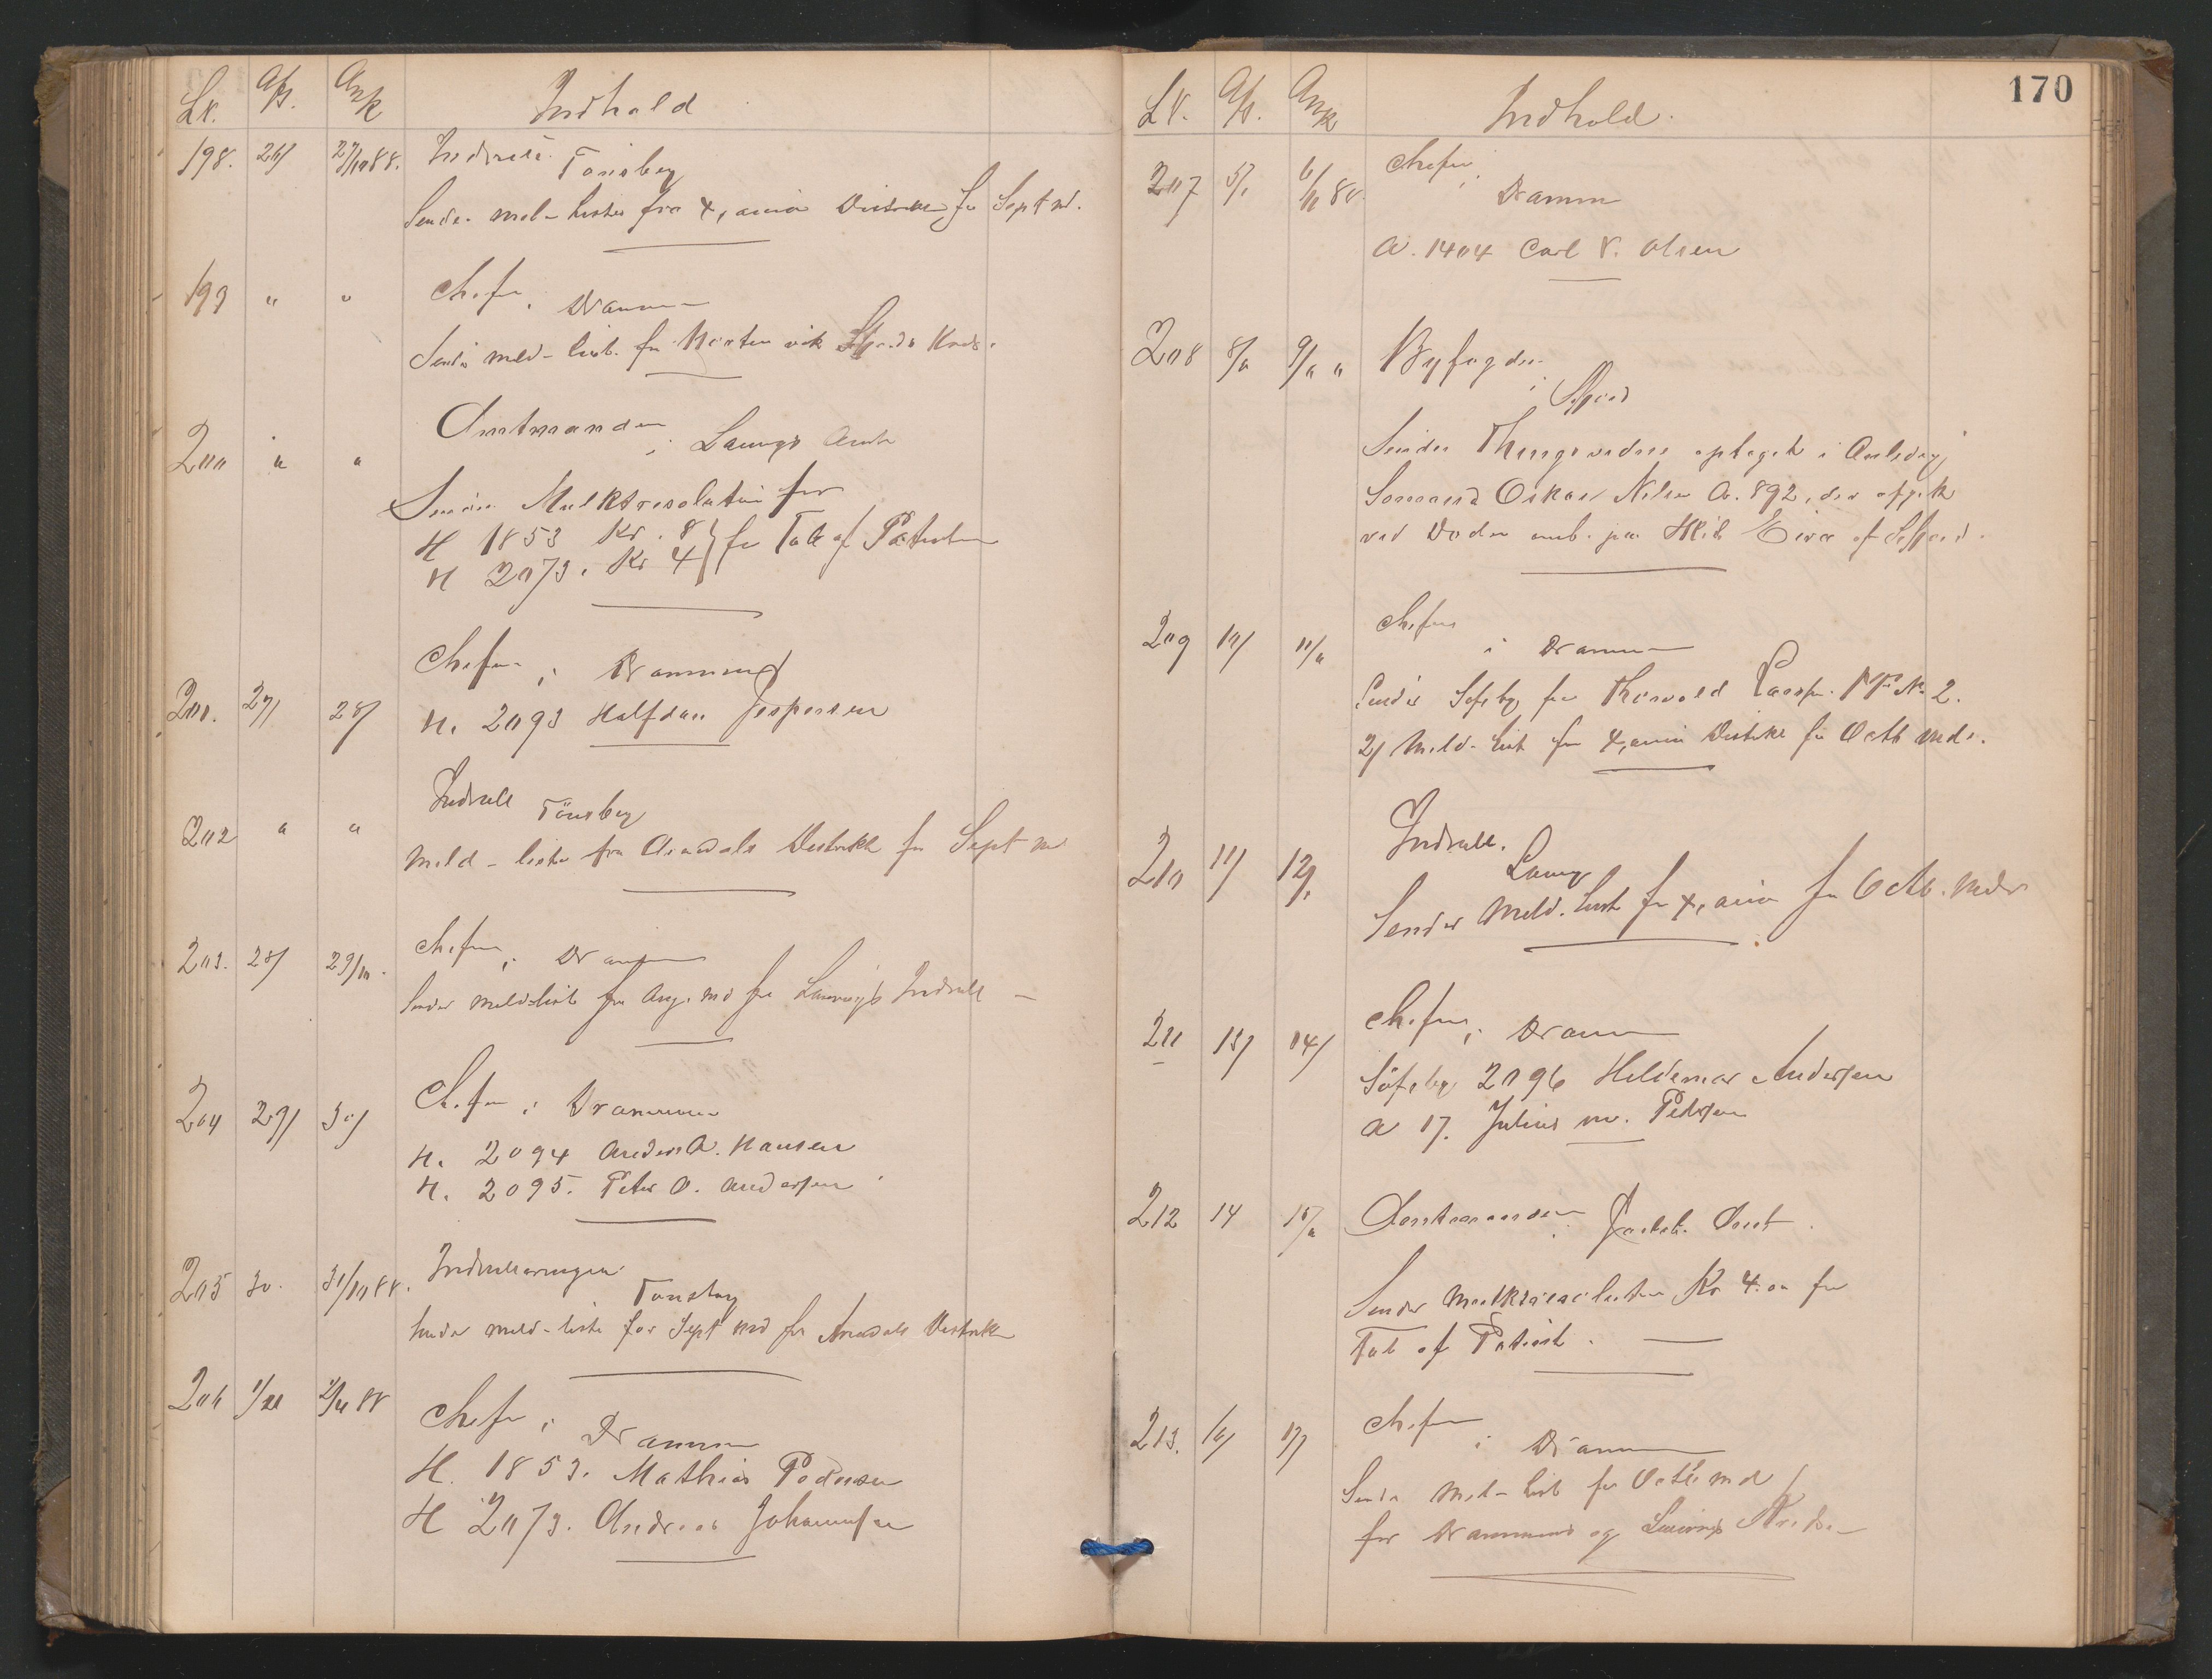 Lr. Afs. Ank Indhold
198. 26/ 27/10 88. Indrull. Tønsberg
Sender meld-lister fra Distrikt for Sept md.
199 " " Chefen i Drammen
Sender meld-list. fra Horten Kreds.
200 " " Amtmanden i Laurvigs Amt
Sender Mulktresolution for
H 1853 Kr. 8 } for Tab af Patent
H 2073. Kr 4
201. 27/ 28/ Chefen i Drammen
H. 2093 Halfdan Jespersen
202 " " Indrull Tönsberg
Meld-lister fra Arendals Distrikt for Sept md
203. 28/ 29/10. Chefen i Drammen
Sender meld-list for Aug. md fra Laurvigs Indrull
204 29/ 30/ Chefen i Drammen
H. 2094 Anders A. Hansen
H. 2095. Peter O. Andersen
205 30. 31/10 88. Indrulleringen Tönsberg
Sender meld-liste for Sept md fra Arendals Distrikt
206 1/11 2/11 88 Chefen i Drammen
H. 1853. Mathias Pedersen
H 2073. Andreas Johannesen
170
Lr. Afs. Ank Indhold.
207 5/ 6/11 88. Chefen i Drammen
A. 1404 Carl V. Olsen
208 8/11 9/11 " Byfogden i
Sender Thingsvidne optaget i Anledning
Sømand Oskar Nilsen A. 892, der afgik
ved Døden omb. paa
209 10/ 11/11 Chefen i Drammen
Sender Søfsbg for Thorvald No 2.
2/ Meld-list fra Distrikt for Octb md.
210 11/ 12/ Indrull. Laurvig
Sender Meld. list fra for Octb. md
211 13/ 14/ Chefen i Drammen
Söfsbg 2096 Hildemar Andersen
A 17. Julius M. Pedersen
212 14 15/11 Amtmanden i Amt.
Sender Mulktresolution Kr 4.00 for
Tab af Patent.
213. 16/ 17/ Chefen i Drammen
Sender Meld-list for Octb md
for Drammens og Laurvigs Kredse